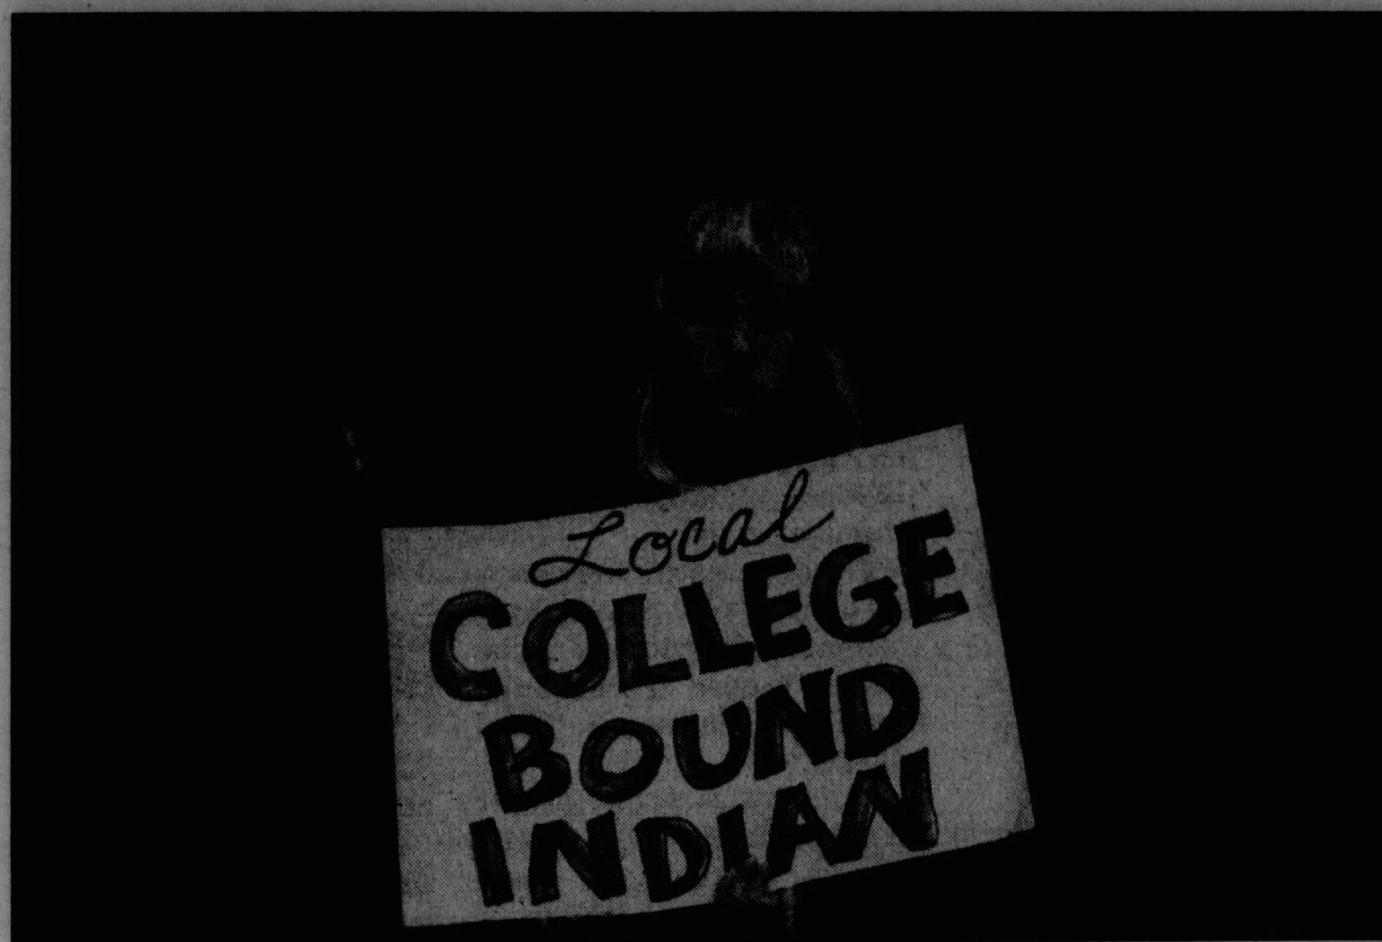 Local
COLLEGE
BOUND
INDIAN